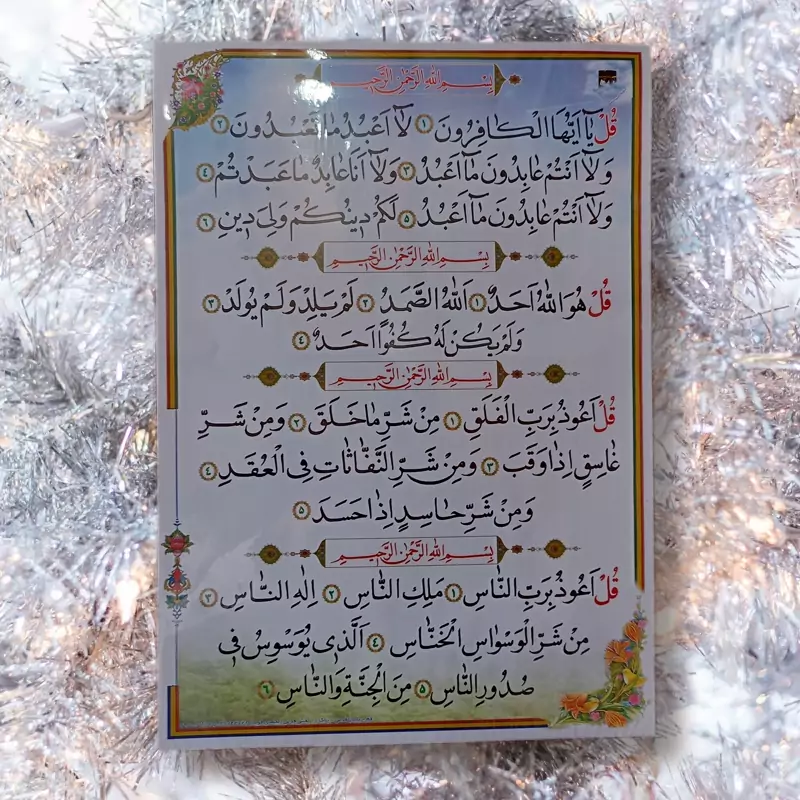 بِسْمِ اللهِ الرَّحْمٰنِ الرَّحِيمِ
قُلْ يَآ اَيُّهَا الْكَافِرُونَ ١ لَآ اَعْبُدُ مَا تَعْبُدُونَ ٢
وَلَآ اَنْتُمْ عَابِدُونَ مَآ اَعْبُدُ ٣ وَلَآ اَنَا۬ عَابِدٌ مَا عَبَدْتُمْ ٤
وَلَآ اَنْتُمْ عَابِدُونَ مَآ اَعْبُدُ ٥ لَكُمْ دِينُكُمْ وَلِيَ دِينِ ٦
بِسْمِ اللهِ الرَّحْمٰنِ الرَّحِيمِ
قُلْ هُوَ اللهُ اَحَدٌ ١ اَللهُ الصَّمَدُ ٢ لَمْ يَلِدْ وَلَمْ يُولَدْ ٣
وَلَمْ يَكُنْ لَهُ كُفُوًا اَحَدٌ ٤
بِسْمِ اللهِ الرَّحْمٰنِ الرَّحِيمِ
قُلْ اَعُوذُ بِرَبِّ الْفَلَقِ ١ مِنْ شَرِّ مَا خَلَقَ ٢ وَمِنْ شَرِّ
غَاسِقٍ اِذَا وَقَبَ ٣ وَمِنْ شَرِّ النَّفَّاثَاتِ فِي الْعُقَدِ ٤
وَمِنْ شَرِّ حَاسِدٍ اِذَا حَسَدَ ٥
بِسْمِ اللهِ الرَّحْمٰنِ الرَّحِيمِ
قُلْ اَعُوذُ بِرَبِّ النَّاسِ ١ مَلِكِ النَّاسِ ٢ اِلٰهِ النَّاسِ ٣
مِنْ شَرِّ الْوَسْوَاسِ الْخَنَّاسِ ٤ اَلَّذِي يُوَسْوِسُ فِي
صُدُورِ النَّاسِ ٥ مِنَ الْجِنَّةِ وَالنَّاسِ ٦